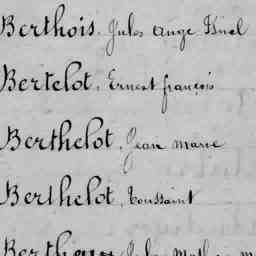 Berthois, Jules Ange
Bertelot, Ernest françois
Berthelot, Jean Marie
Berthelot, Toussaint
Jules